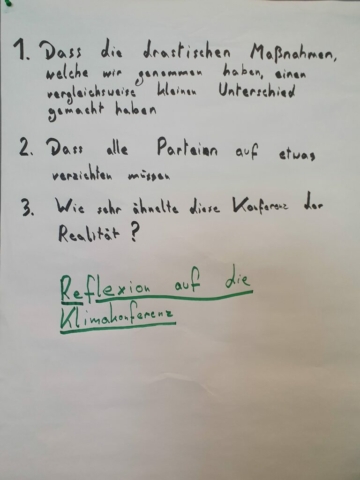 1. Dass die drastischen Maßnahmen,
welche wir genommen haben, einen
vergleichsweise kleinen Unterschied
gemacht haben
2. Dass alle Parteien auf etwas
verzichten müssen
3. Wie sehr ähnelte diese Konferenz der
Realität?
Reflexion auf die
Klimakonferenz